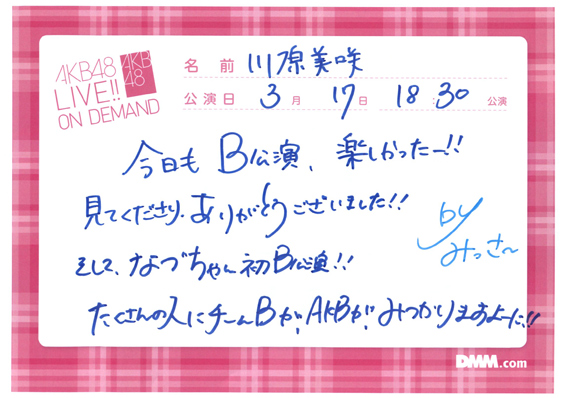 AKB48
LIVE!!
ON DEMAND
AKB
48
名前 川原美咲
公演日 3月 17日 18:30 公演
今日も B公演、楽しかったー!!
見てくださり、ありがとうございました!!
そして、なづちゃん初B公演!!
たくさんの人にチームBが、AKBが、みつかりますよーに!!
by
みっさー
DMM.com